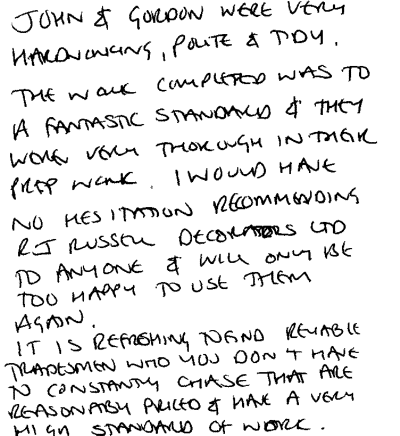 JOHN & GORDON WERE VERY
HARDWORKING, POLITE & TIDY.
THE WORK COMPLETED WAS TO
A FANTASTIC STANDARD & THEY
WERE VERY THOROUGH IN THEIR
PREP WORK. I WOULD HAVE
NO HESITATION RECOMMENDING
RJ RUSSELL DECORATORS LTD
TO ANYONE & WILL ONLY BE
TOO HAPPY TO USE THEM
AGAIN.
IT IS REFRESHING TO FIND RELIABLE
TRADESMEN WHO YOU DON'T HAVE
TO CONSTANTLY CHASE THAT ARE
REASONABLY PRICED & HAVE A VERY
HIGH STANDARD OF WORK.